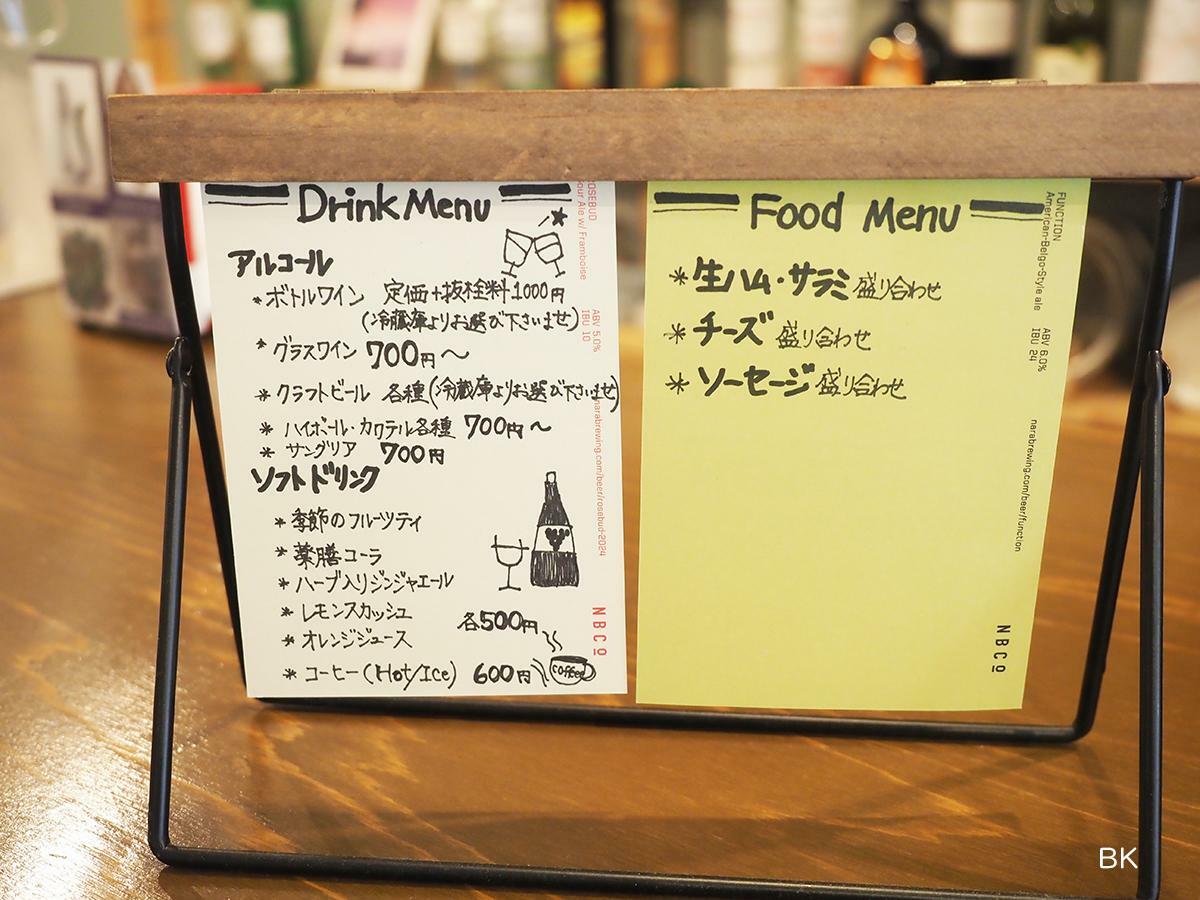 Drink Menu
アルコール
*ボトルワイン 定価+抜栓料1000円
(冷蔵庫よりお選び下さいませ)
*グラスワイン 700円~
*クラフトビール 各種(冷蔵庫よりお選び下さいませ)
*ハイボール・カクテル各種 700円~
*サングリア 700円
ソフトドリンク
*季節のフルーツティ
*薬膳コーラ
*ハーブ入りジンジャエール
*レモンスカッシュ 各500円
*オレンジジュース
*コーヒー(Hot/Ice) 600円
coffee
ROSEBUD
Sour Ale w/ Framboise
ABV 5.0%
IBU 10
narabrewing.com/beer/rosebud-2024
NBCo
Food Menu
*生ハム・サラミ盛り合わせ
*チーズ盛り合わせ
*ソーセージ盛り合わせ
FUNCTION
American-Belgo-Style ale
ABV 6.0%
IBU 24
narabrewing.com/beer/function
NBCo
BK